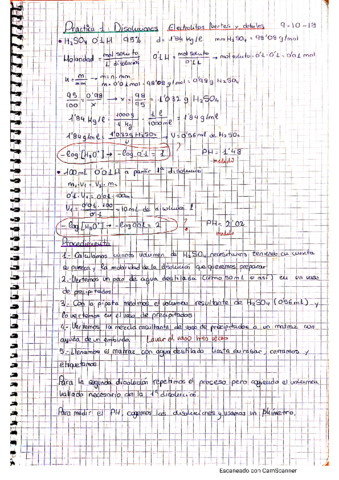 Practica 1 Disoluciones Electrolitos fuertes y débiles 9-10-19
• H₂SO₄ 0'1 M 95% d = 1'84 kg/l mm H₂SO₄ = 98'08 g/mol
Molaridad = moles soluto / L disolución 0'1 M = moles soluto / 0'1 L → moles soluto = 0'1 · 0'1 = 0'01 mol
n = m / mm → m = n · mm
m = 0'01 mol · 98'08 g/mol = 0'98 g H₂SO₄
95 / 100 = 0'98 / x → x = 98 / 95 = 1'032 g H₂SO₄
1'84 kg/l · 1000 g / 1 kg · 1 l / 1000 ml = 1'84 g/ml
1'84 g/ml = 1'032 g H₂SO₄ / V → V = 0'56 ml de H₂SO₄
-log [H₃O⁺] → -log 0'1 = 1 ? PH = 1'48
medido
• 100 ml 0'01 M a partir 1ª disolución
m₁ · V₁ = V₂ · m₂
0'1 · V₁ = 0'01 · 100
V₁ = 0'01 · 100 / 0'1 = 10 ml de disolución 1
-log [H₃O⁺] → -log 0'01 = 2 ? PH = 2'02
medido
Procedimiento
1.- Calculamos cuánto volumen de H₂SO₄ necesitamos teniendo en cuenta
su pureza y la molaridad de la disolución que queremos preparar
2.- Vertemos un poco de agua destilada (como 50 ml o así) en un vaso
de precipitados
3.- Con la pipeta medimos el volumen resultante de H₂SO₄ (0'56 ml) y
lo vertemos en el vaso de precipitados
4.- Vertemos la mezcla resultante del vaso de precipitados a un matraz con
ayuda de un embudo Lavar el vaso tres veces
5.- Llenamos el matraz con agua destilada hasta enrasar, cerramos y
etiquetamos
Para la segunda disolución repetimos el proceso pero cogiendo el volumen
hallado necesario de la 1ª disolución.
Para medir el PH, cogemos las disoluciones y usamos un pHmetro.
Escaneado con CamScanner